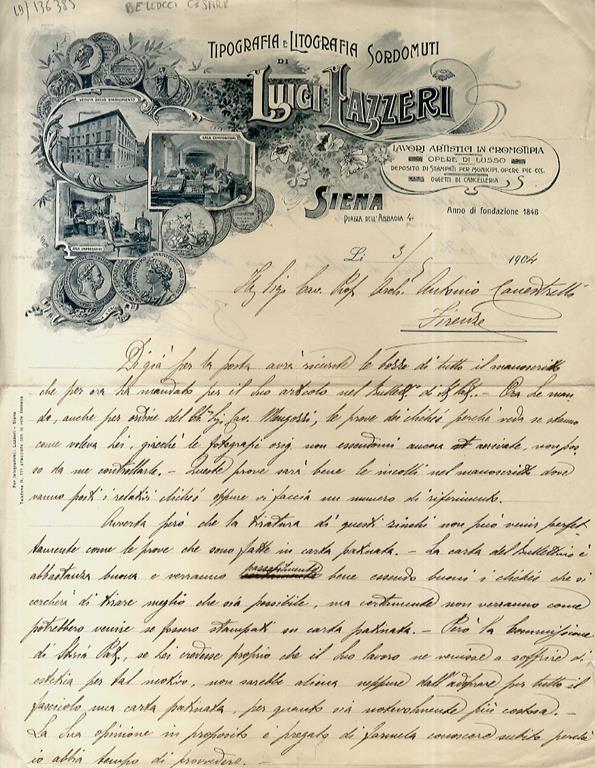 LD/136383
BELLUCCI CESARE
TIPOGRAFIA E LITOGRAFIA SORDOMUTI
DI
LUIGI LAZZERI
VEDUTA DELLO STABILIMENTO
SALA COMPOSITORI
SALA IMPRESSIONI
LAVORI ARTISTICI IN CROMOTIPIA
OPERE DI LUSSO
DEPOSITO DI STAMPATI PER MUNICIPI, OPERE PIE ECC.
OGGETTI DI CANCELLERIA
SIENA
PIAZZA DELL'ABBADIA 4.
Anno di fondazione 1846
Li 3/5 1904
Ill. Sig. Cav. Prof. Arch. Antonio Canestrelli
Firenze
Di già per la posta avrà ricevute le bozze di tutto il manoscritto
che per ora ha mandato per il Suo articolo nel Bullett. di St. Pat. - Ora Le man-
do, anche per ordine del Sig. Cav. Mengozzi, le prove dei clichés perchè veda se stanno
come voleva Lei, giacchè le fotografie orig. non essendomi ancora inviate, non pos-
so da me controllarle. - Queste prove sarà bene le incolli nel manoscritto dove
vanno posti i relativi clichés oppure vi faccia un numero di riferimento.
Avverta però che la tiratura di questi zinchi non può venir perfet-
tamente come le prove che sono fatte in carta patinata. - La carta del Bullettino è
abbastanza buona e verranno passabilmente bene essendo buoni i clichés che si
cercherà di tirare meglio che sia possibile, ma certamente non verranno come
potrebbero venire se fossero stampati su carta patinata. - Però la Commissione
di Storia Pat., se Lei credesse proprio che il Suo lavoro ne venisse a soffrire di
estetica per tal motivo, non sarebbe aliena neppure dall'adoprare per tutto il
fascicolo una carta patinata, per quanto sia notevolmente più costosa. -
La Sua opinione in proposito è pregato di farmela conoscere subito perchè
io abbia tempo di provvedere. -
Per telegrammi: Lazzeri - Siena